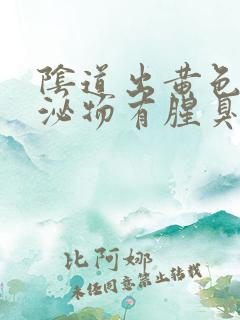 陰道出黄色
泌物有腥臭
比阿娜
未经同意禁止转载